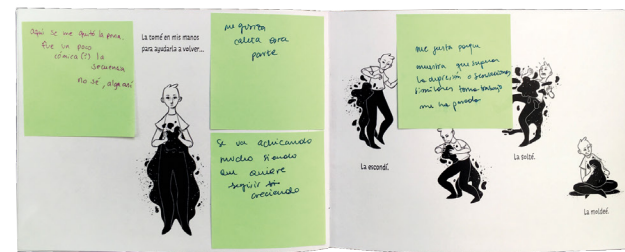 aquí se me quitó la pena.
fue un poco
cómica (?) la
secuencia
no sé, algo así
La tomé en mis manos
para ayudarla a volver...
me gusta
caleta esta
parte
Se va achicando
mucho siendo
que quiere
seguir
creciendo
me gusta porque
muestra que superar
la depresión o sensaciones
similares toma trabajo
me ha pasado
La escondí.
La solté.
La moldeé.